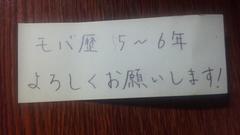 モバ歴 5～6年
よろしくお願いします!